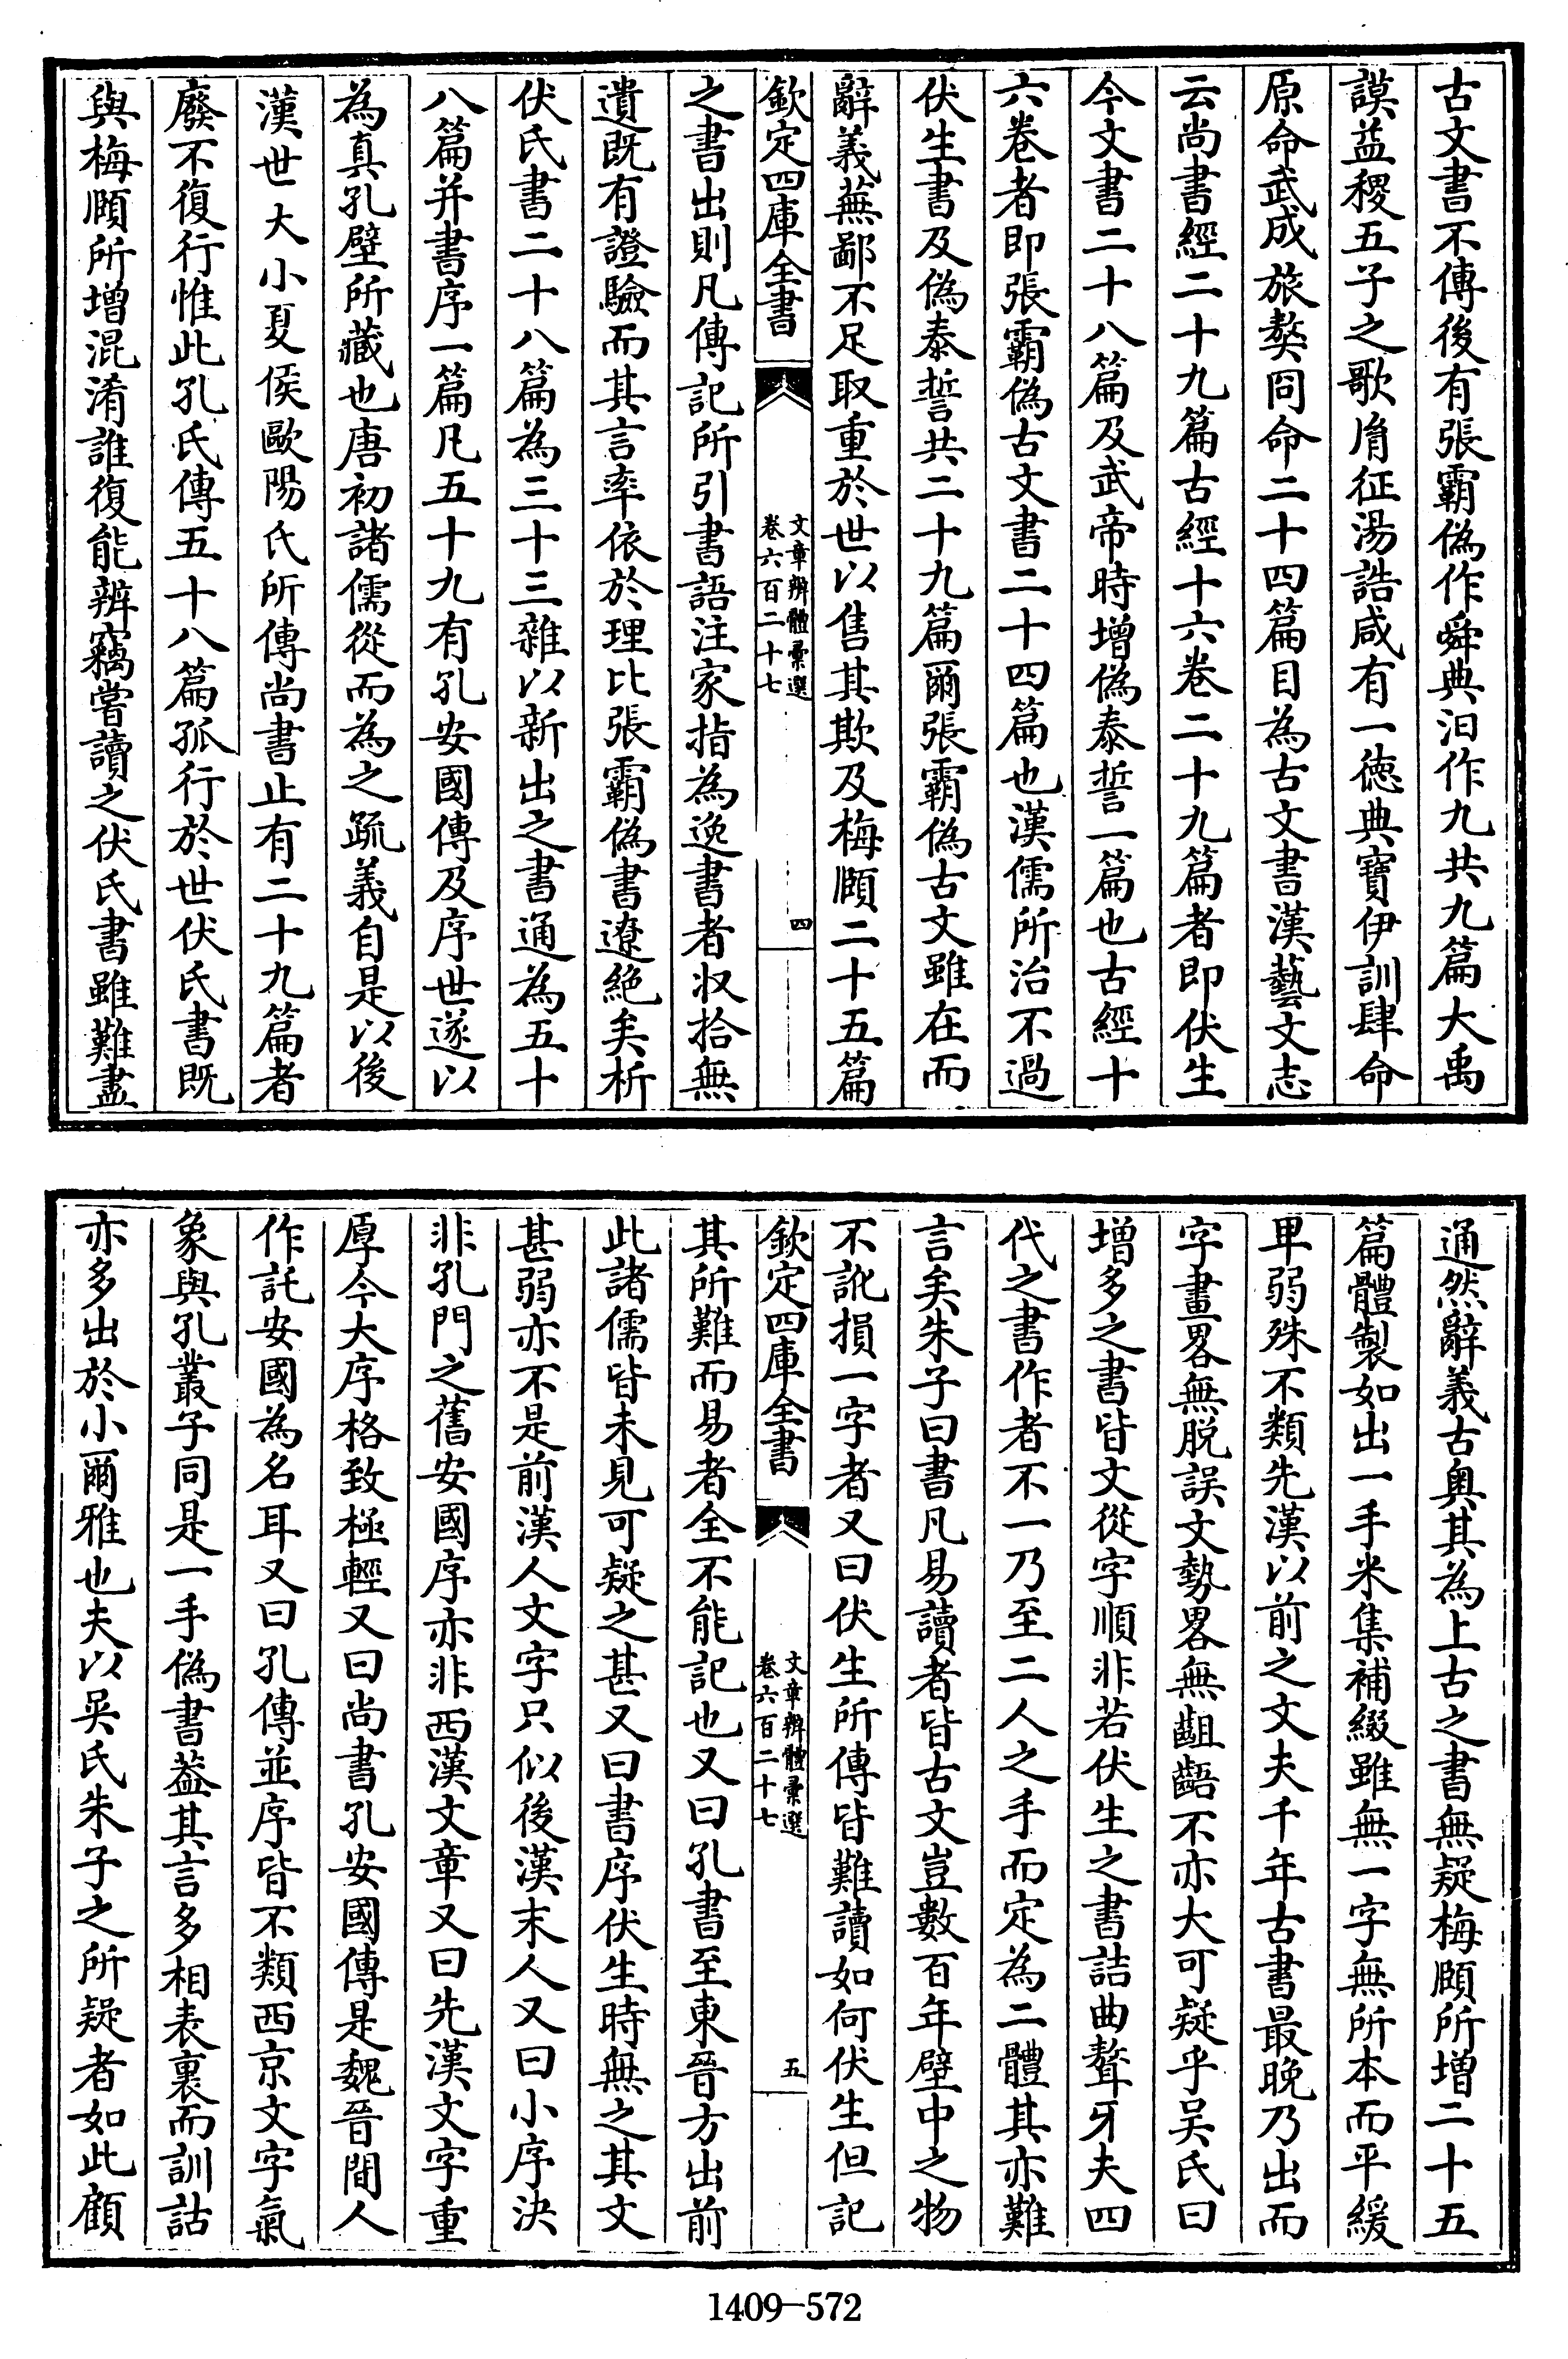 古文書不傳後有張霸偽作舜典汩作九共九篇大禹
謨益稷五子之歌胤征湯誥咸有一德典寶伊訓肆命
原命武成旅獒冏命二十四篇目為古文書漢藝文志
云尚書經二十九篇古經十六卷二十九篇者即伏生
今文書二十八篇及武帝時增偽泰誓一篇也古經十
六卷者即張霸偽古文書二十四篇也漢儒所治不過
伏生書及偽泰誓共二十九篇爾張霸偽古文雖在而
辭義蕪鄙不足取重於世以售其欺及梅賾二十五篇
欽定四庫全書
文章辨體彙選
卷六百二十七
四
之書出則凡傳記所引書語注家指為逸書者收拾無
遺既有證驗而其言率依於理比張霸偽書遼絕矣析
伏氏書二十八篇為三十三雜以新出之書通為五十
八篇并書序一篇凡五十九有孔安國傳及序世遂以
為真孔壁所藏也唐初諸儒從而為之疏義自是以後
漢世大小夏侯歐陽氏所傳尚書止有二十九篇者
廢不復行惟此孔氏傳五十八篇孤行於世伏氏書既
與梅賾所增混淆誰復能辨竊嘗讀之伏氏書雖難盡
通然辭義古奧其為上古之書無疑梅賾所增二十五
篇體製如出一手采集補綴雖無一字無所本而平緩
卑弱殊不類先漢以前之文夫千年古書最晚乃出而
字畫畧無脫誤文勢畧無齟齬不亦大可疑乎吳氏曰
增多之書皆文從字順非若伏生之書詰曲聱牙夫四
代之書作者不一乃至二人之手而定為二體其亦難
言矣朱子曰書凡易讀者皆古文豈數百年壁中之物
不訛損一字者又曰伏生所傳皆難讀如何伏生但記
欽定四庫全書
文章辨體彙選
卷六百二十七
五
其所難而易者全不能記也又曰孔書至東晉方出前
此諸儒皆未見可疑之甚又曰書序伏生時無之其文
甚弱亦不是前漢人文字只似後漢末人又曰小序決
非孔門之舊安國序亦非西漢文章又曰先漢文字重
厚今大序格致極輕又曰尚書孔安國傳是魏晉間人
作託安國為名耳又曰孔傳並序皆不類西京文字氣
象與孔叢子同是一手偽書葢其言多相表裏而訓詁
亦多出於小爾雅也夫以吳氏朱子之所疑者如此顧
1409-572